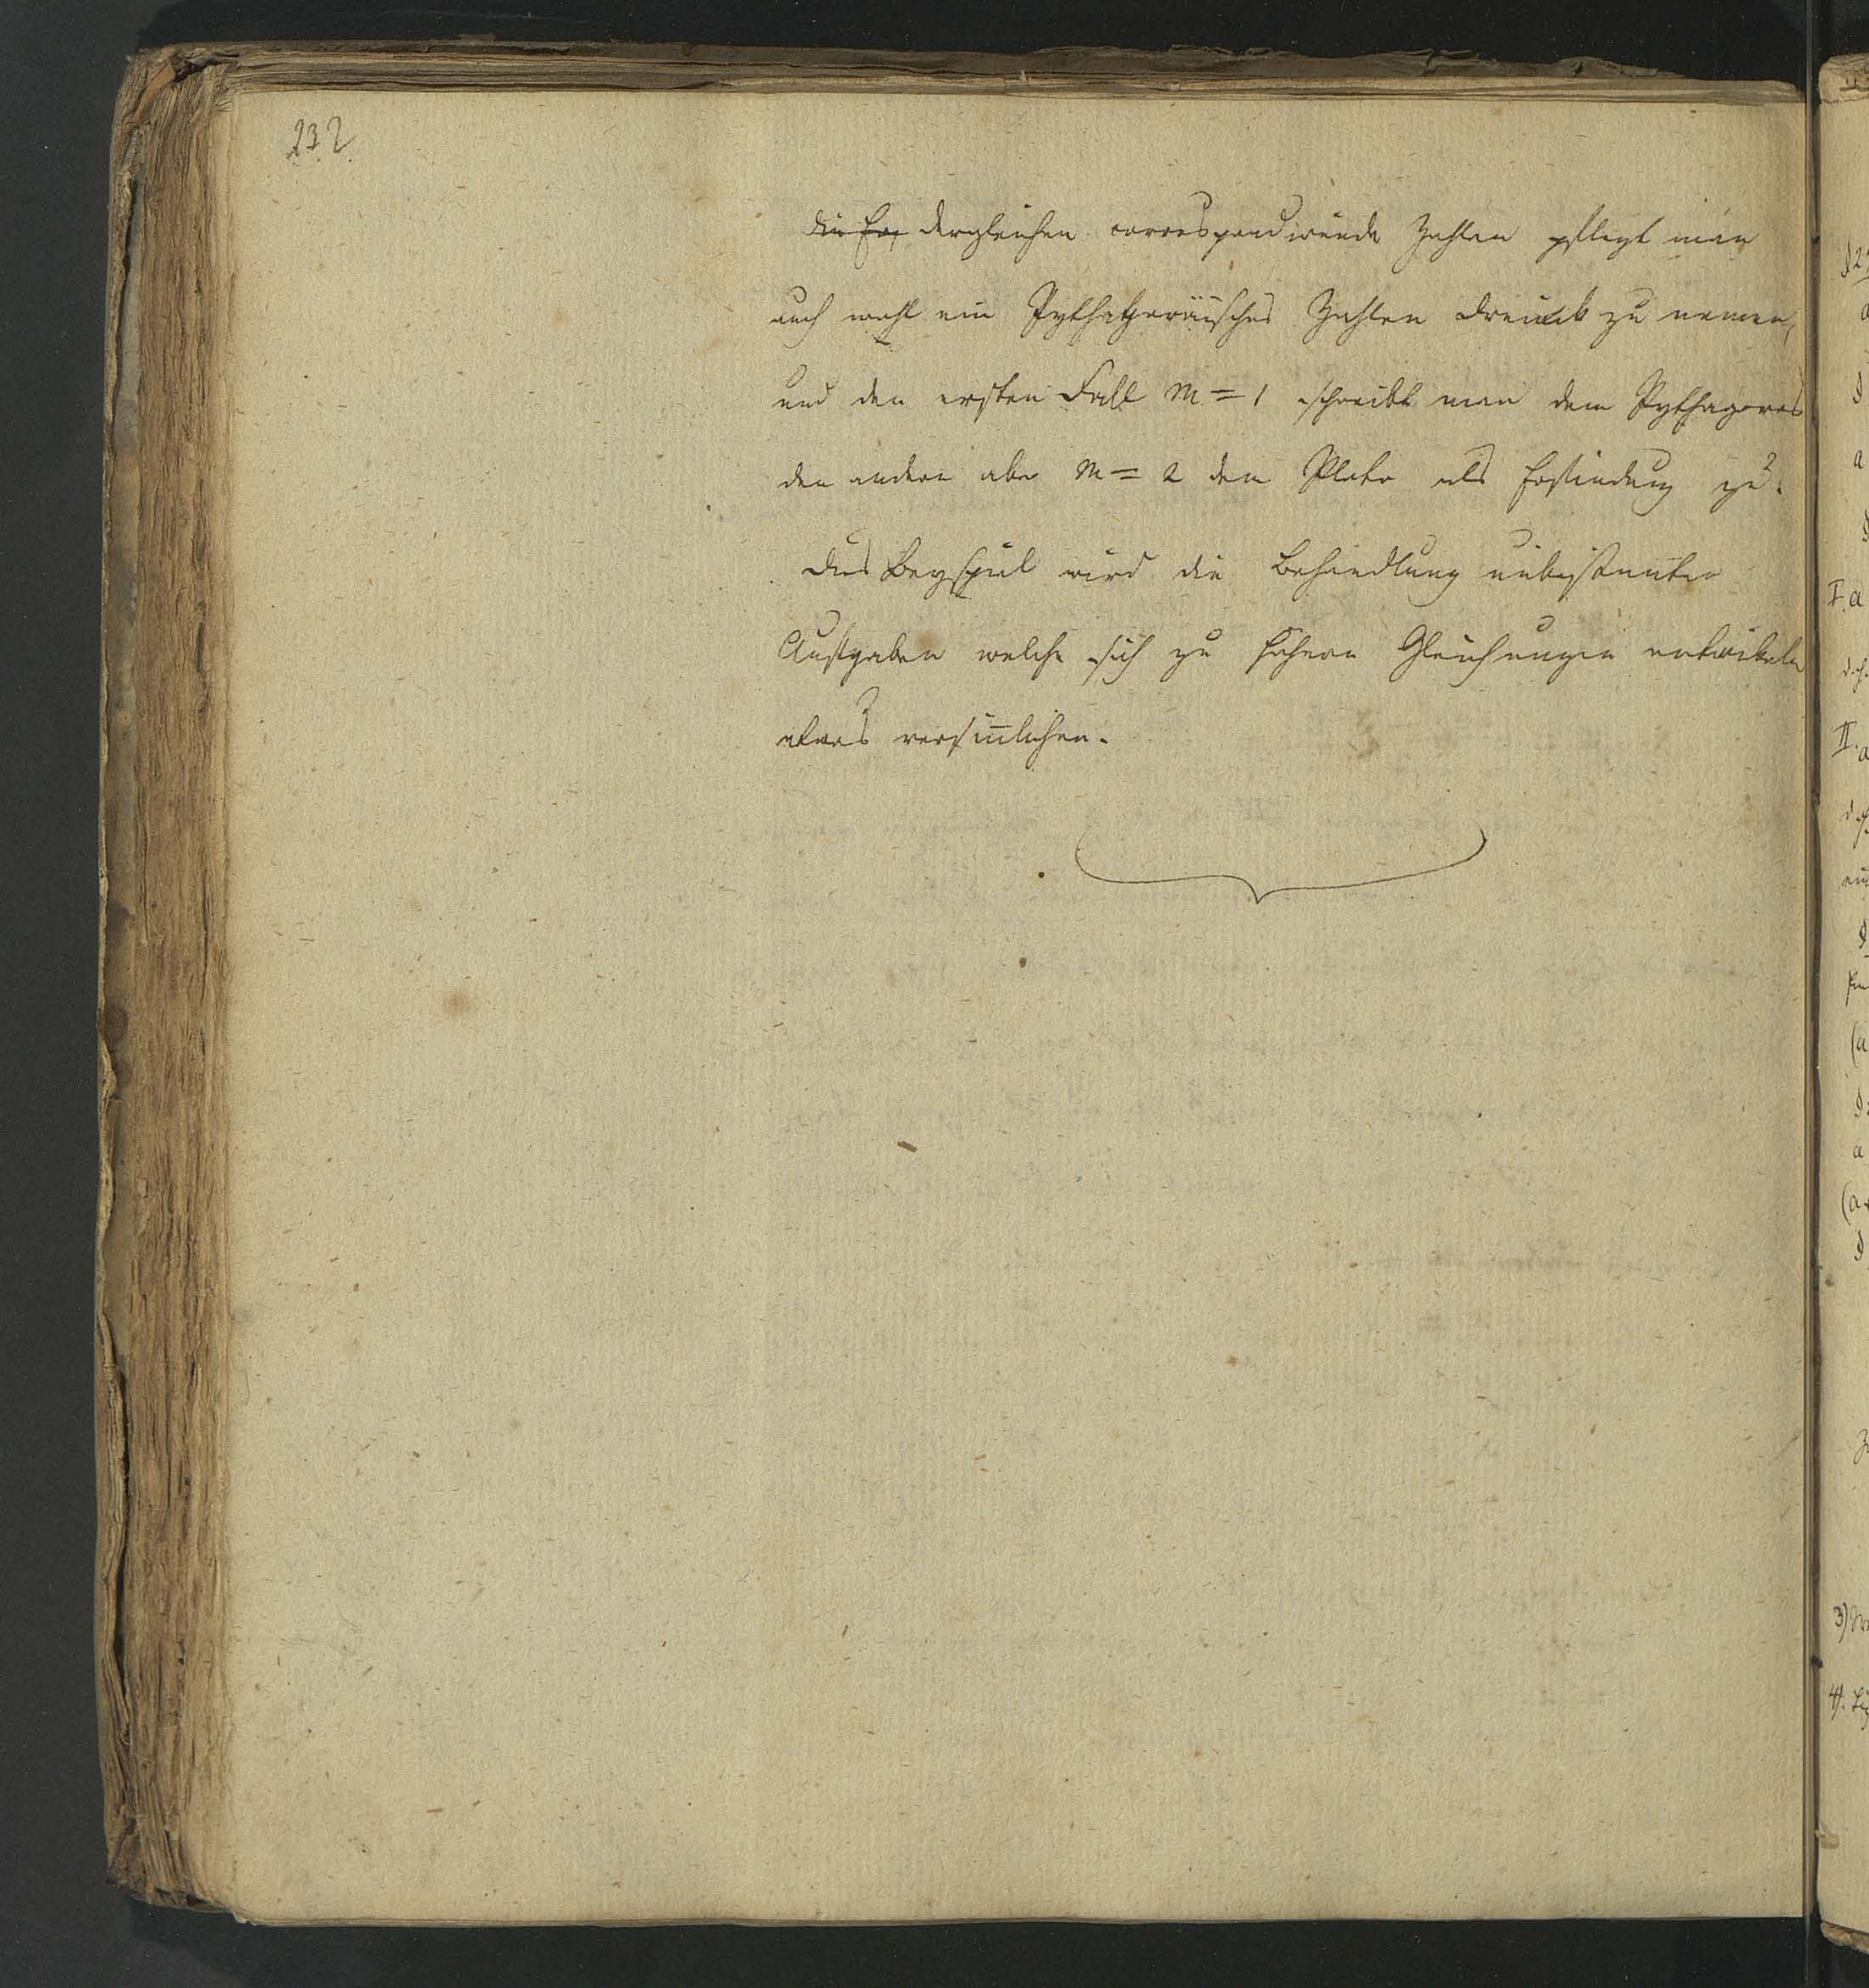 232
die Er dergleichen correspondirende Zahlen pflegt man
auch wohl ein Pythagoräisches Zahlen dreieck zu nennen,
und den ersten Fall m = 1 schreibt man dem Pythagoras
den andern aber m = 2 dem Plato als Erfindung zu.
Dies Beyspiel wird die Behandlung unbestimter
Aufgaben welche sich zu höhern Gleichungen entwikeln
etwas versinlichen.